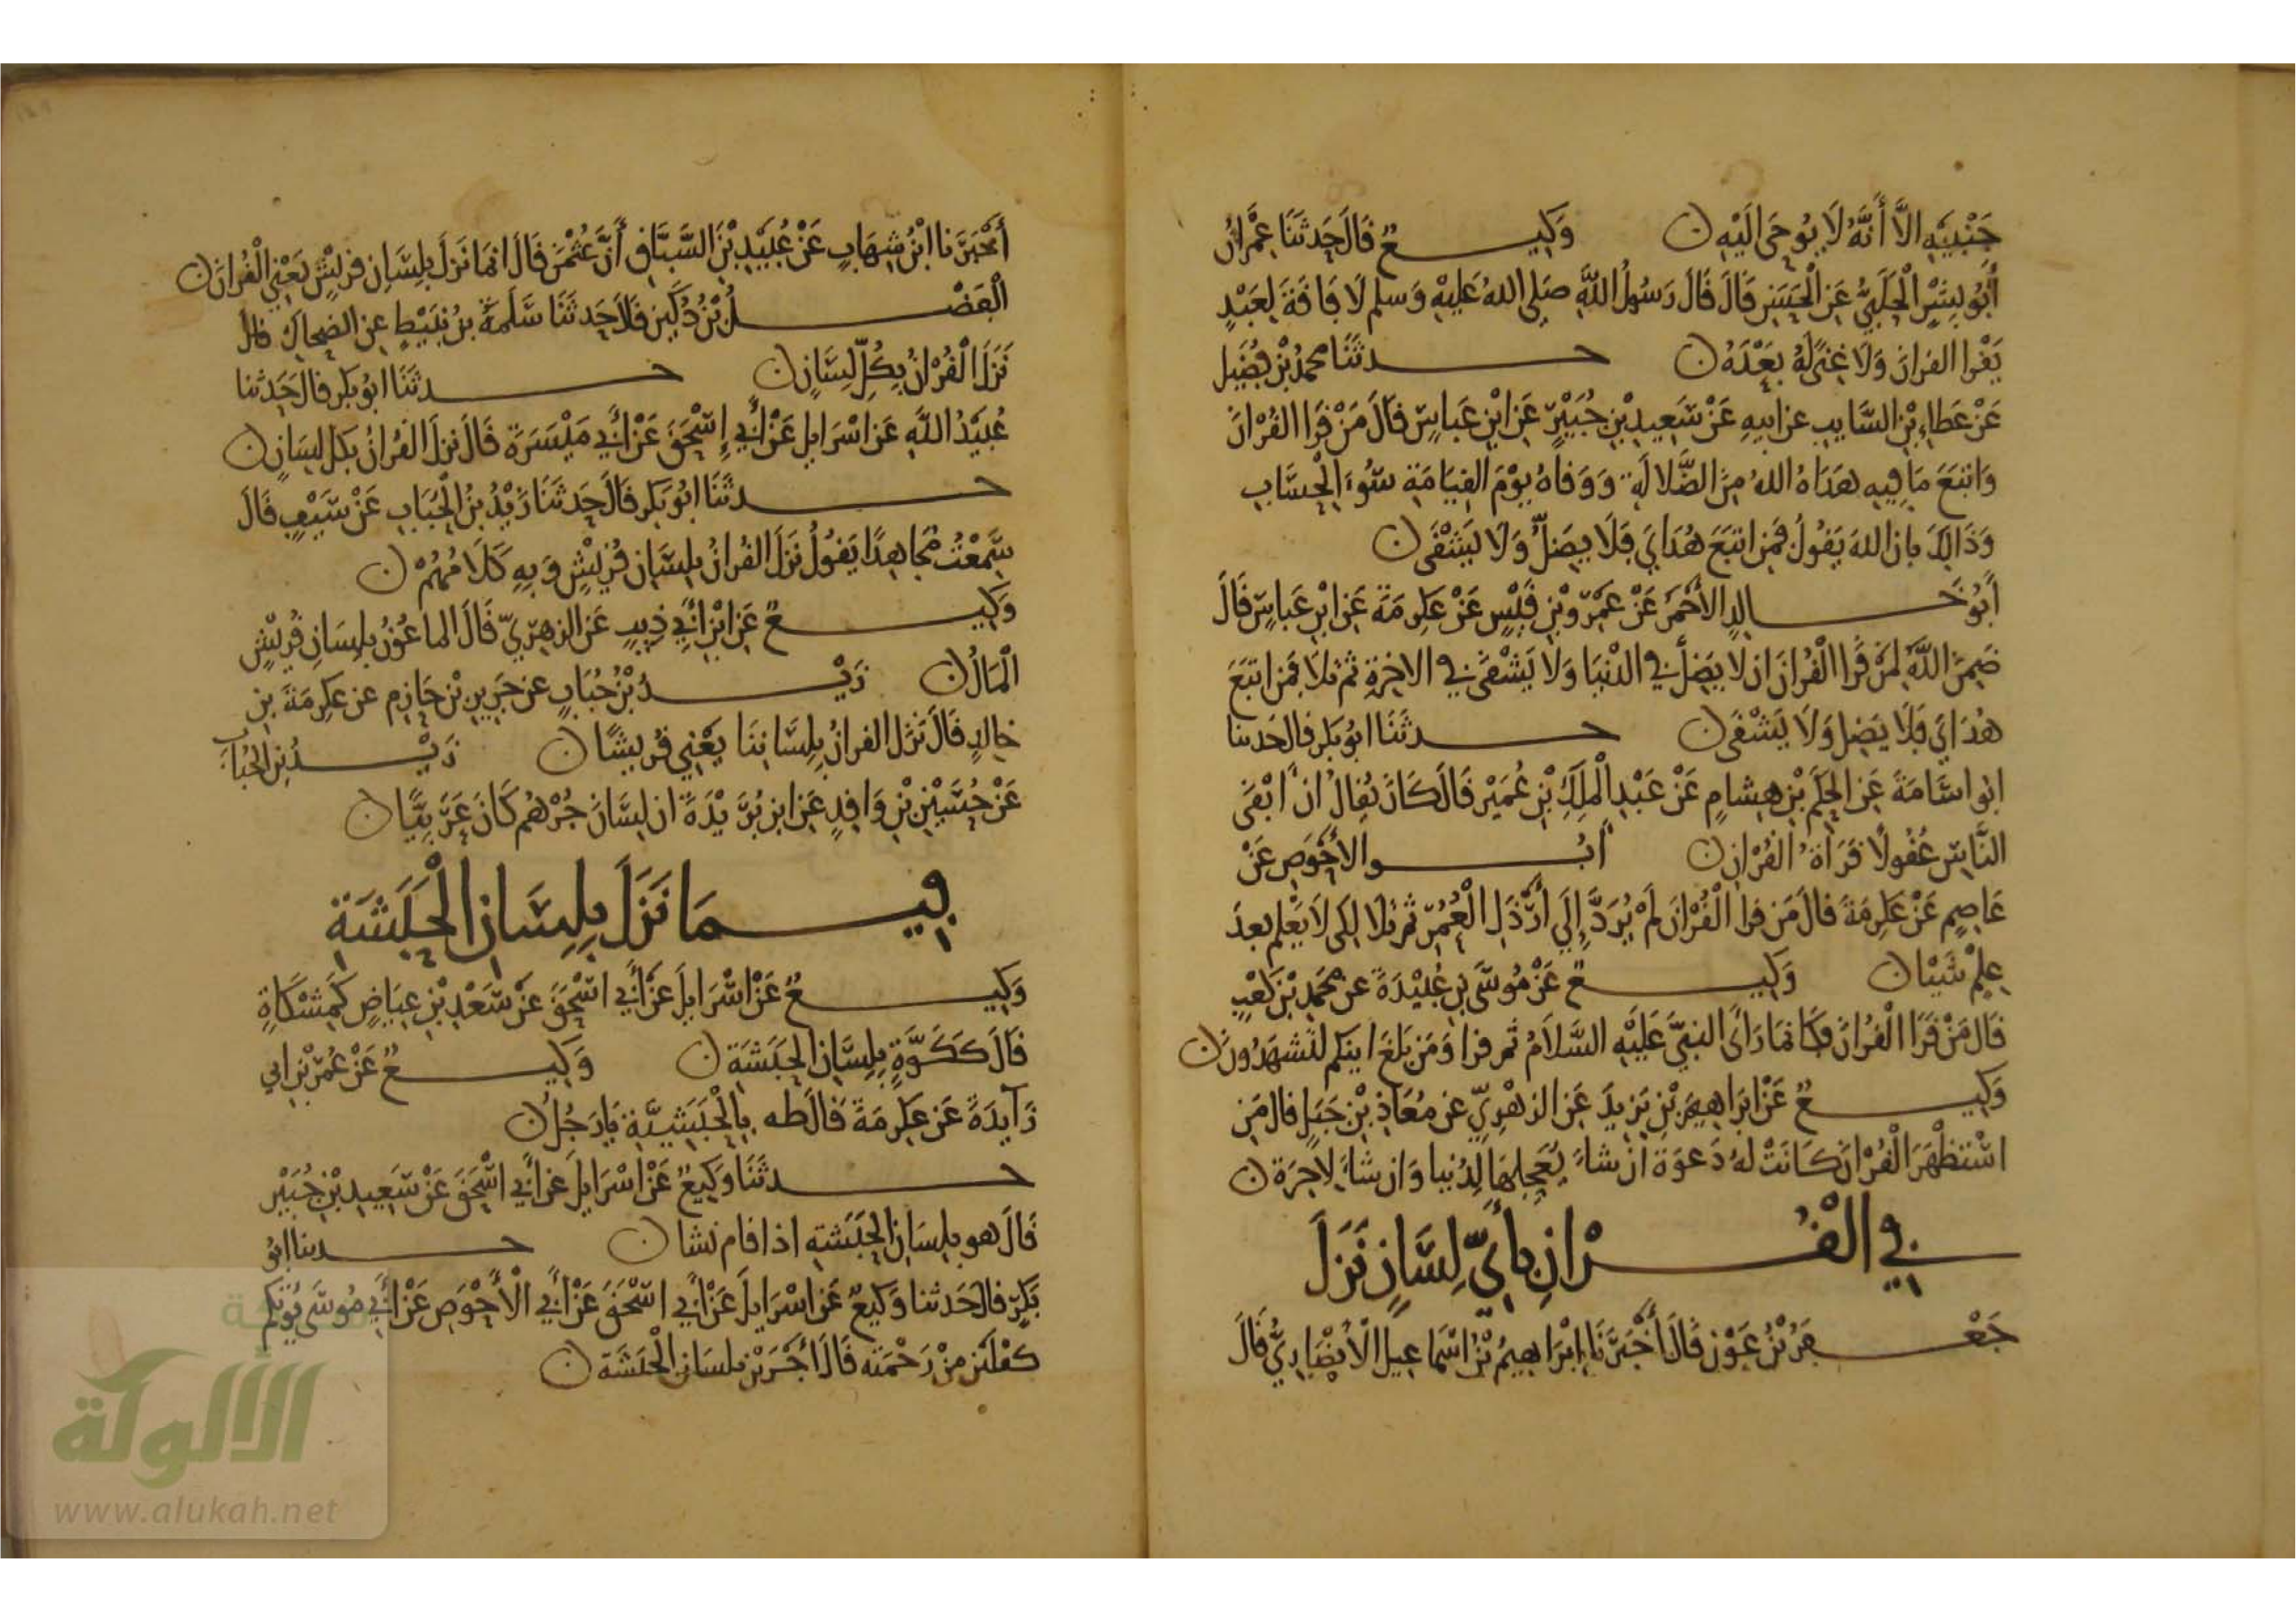 جَنْبِيَهِ الَّا أَنَّهُ لَا يُوحَى الَيْهِ ن وَكِيعٌ قَالَ حَدثَنَا عِمْرَانُ
أَبُو بِشْرٍ الْحَلَبِيُّ عَنِ الْحَسَنِ قَالَ قَالَ رَسُولُ اللَّهِ صَلى اللهُ عَلَيْهِ وَسلم لَا فَاقَةَ لِعَبْدٍ
يَقْرا القرانَ وَلَا غِنًى لَهُ بَعْدَهُ ن حدثَنَا محمدُ بْنُ فُضَيل
عَنْ عَطاءِ بْنِ السَّايبِ عن ابيهِ عَنْ سَعِيدِ بْنِ جُبَيْرٍ عَنِ ابْنِ عَباسٍ قَالَ مَنْ قَرَا القُرْانَ
وَاتبَعَ مَا فِيهِ هَدَاهُ اللهُ مِنَ الضَّلَالَةِ وَوَقاهُ يوْمَ القِيَامَةِ سُوءَ الْحِسَابِ
وَذَالِكَ بِانَ اللهَ يَقُولُ فَمَنِ اتبَعَ هُدَايَ فَلَا يَضلُّ وَلَا يَشْقَى ن
أَبُو خَالِدٍ الأَحْمَرُ عَنْ عَمْرِو بْنِ قَيْسٍ عَنْ عِكِرمَةَ عَنِ ابْنِ عَباسٍ قَالَ
ضَمِنَ اللَّهُ لِمَنْ قَرَا الْقُرْانَ ان لا يَضِلَّ في الدُّنيَا وَلَا يَشْقَى في الاخِرَةِ ثمَّ تَلَا فَمَن اتبَعَ
هُدَايَ فَلَا يَضِل وَلَا يَشْقَى ن حدثَنَا ابُو بكر قال حَدثنا
ابُو اسَامَةَ عَنِ الحَكَمِ بْنِ هِشامٍ عَنْ عَبْدِ الْمَلِكِ بْنِ عُمَيْر قَالَ كَانَ يُقالُ انَّ ابْقَى
النَّاسِ عُقُولًا قَرَأَةُ القُرْانِ ن أَبُو الأَحْوَصِ عَنْ
عَاصِمٍ عَنْ عِكِرمَةَ قالَ مَن قرا الْقُرْانَ لَمْ يُرَدَّ إِلَى أَرْذَلِ الْعُمُرِ ثم تَلا لِكي لَا يَعْلم بعدَ
عِلْمٍ شَيْئا ن وَكِيعٌ عَنْ مُوسَى بنِ عُبَيْدَةَ عن مُحَمدِ بْنِ كَعْبٍ
قَالَ مَنْ قَرَا القُرْانَ فكَانمَا رَأَى النبيَّ عَلَيْهِ السَّلَامُ ثم قرا وَمَن بَلَغَ اينكم لتشهَدُونَ ن
وَكِيعٌ عَنْ ابرَاهِيمَ بْنِ يَزِيدَ عَنِ الزهْرِيِّ عن مُعَاذِ بْنِ جَبَلٍ قال مَنِ
اسْتظْهَرَ الْقُرْانَ كَانَتْ لهُ دَعوَةٌ ان شاءَ يُعَجِلهَا لِدُنيا وَان شاءَ لِاخِرَة ن
في الْقُرْانِ بأَيِّ لِسَّانٍ نَزَلَ
جَعْفَرُ بْنُ عَوْنٍ قَالَ أَخْبَرَنَا إِبْرَاهِيمُ بْنُ اسْمَاعِيلَ الأَنْصَارِيُّ قَالَ
أَخْبَرَنا ابْنُ شِهَابٍ عَنْ عُبَيْدِ بْنِ السَّبَّاقِ أَنَّ عُثْمَنَ قَالَ انمَا نَزَلَ بِلِسَانِ قرَيْشٍ يَعْنِي الْقُرانَ ن
الْفَضْلُ بْنُ دُكَيْنٍ قَالَ حَدثَنَا سَلَمَةُ بنُ نبَيْطٍ عن الضحاك قال
نَزَلَ الْقُرْانُ بِكُلِّ لِسَانٍ ن حدثَنَا ابُو بكر قال حَدثنا
عُبَيْدُ اللَّهِ عَن اسْرَايل عَنْ أَبي إِسْحَقَ عَنْ أَبي مَيْسَرَةَ قَالَ نزلَ القُرانُ بكل لِسَانٍ ن
حدثَنَا ابُو بَكر قَالَ حَدثَنَا زَيْدُ بنُ الْحُبَابِ عَنْ سَيْفٍ قَالَ
سَمِعْتُ مُجَاهِدًا يَقُولُ نَزَلَ القُرانُ بلِسَانِ قُرَيْشٍ وَبِهِ كَلَامُهُمْ ن
وَكِيعٌ عَنِ ابْنِ أَبي ذِيبٍ عَنِ الزهْرِيِّ قَالَ الماعُونُ بلِسَانِ قُرَيْشٍ
الْمَالُ ن زَيْدُ بْنُ حُبَابٍ عن جَرِيرِ بْنِ حَازِم عن عكِرمَةَ بنِ
خالِدٍ قَالَ نَزَل القرانُ بِلِسَانِنَا يَعْنِي قُرَيشًا ن زَيْدُ بن الحُبَابِ
عَنْ حُسَيْنِ بْنِ وَاقِدٍ عَن ابن بُرَيْدَةَ ان لِسَانَ جُرْهُم كَانَ عَرَبِيًّا ن
فِيمَا نَزَلَ بِلِسَانِ الْحَبَشَةِ
وَكِيعٌ عَنْ اسْرَايلَ عَنْ أَبي اسْحَقَ عَنْ سَعْدِ بْنِ عِيَاضٍ كَمِشْكَاةٍ
قَالَ كَكَوَّةٍ بِلِسَانِ الحَبَشَةِ ن وَكِيعٌ عَنْ عُمَرَ بْنِ ابي
زَآيدَةَ عَن عِكِرمَةَ قَالَ طه بِالْحَبَشِيَّةِ يَا رَجُلُ ن
حدثَنَا وَكِيعٌ عَنْ اسْرَايلَ عَن أَبي اسْحَقَ عَنْ سَعِيدِ بْنِ جُبَيْر
قَالَ هو بِلِسَانِ الحَبَشَةِ اذا قام نشا ن حدثنا ابُو
بَكرٍ قالَ حَدثنا وَكِيعٌ عَن اسْرَايلَ عَنْ أَبي اسْحَقَ عَنْ أَبي الْأَحْوَصِ عَنْ أَبي مُوسَى يُؤتكم
كفْلَيْنِ مِنْ رَحْمَتِه قَالَ أَجْرَيْنِ بلسَانِ الْحَبَشَة ن
الألوكة
www.alukah.net